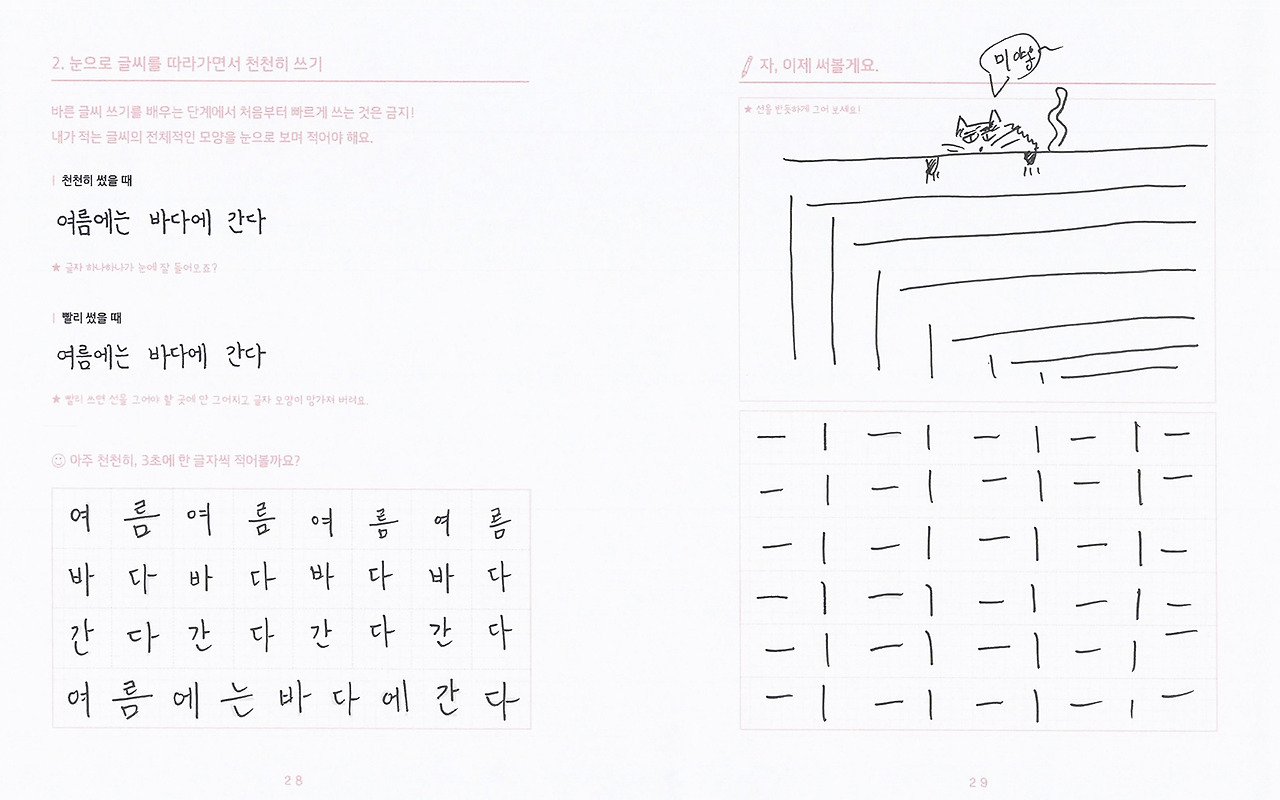 2. 눈으로 글씨를 따라가면서 천천히 쓰기
바른 글씨 쓰기를 배우는 단계에서 처음부터 빠르게 쓰는 것은 금지!
내가 적는 글씨의 전체적인 모양을 눈으로 보며 적어야 해요.
천천히 썼을 때
여름에는 바다에 간다
★ 글자 하나하나가 눈에 잘 들어오죠?
빨리 썼을 때
여름에는 바다에 간다
★ 빨리 쓰면 선을 그어야 할 곳에 안 그어지고 글자 모양이 망가져 버려요.
아주 천천히, 3초에 한 글자씩 적어볼까요?
여 름 여 름 여 름 여 름
바 다 바 다 바 다 바 다
간 다 간 다 간 다 간 다
여 름 에 는 바 다 에 간 다
28
자, 이제 써볼게요.
미야옹
★ 선을 반듯하게 그어 보세요!
ㅡ ㅣ ㅡ ㅣ ㅡ ㅣ ㅡ ㅣ ㅡ
ㅡ ㅣ ㅡ ㅣ ㅡ ㅣ ㅡ ㅣ ㅡ
ㅡ ㅣ ㅡ ㅣ ㅡ ㅣ ㅡ ㅣ ㅡ
ㅡ ㅣ ㅡ ㅣ ㅡ ㅣ ㅡ ㅣ ㅡ
ㅡ ㅣ ㅡ ㅣ ㅡ ㅣ ㅡ ㅣ ㅡ
ㅡ ㅣ ㅡ ㅣ ㅡ ㅣ ㅡ ㅣ ㅡ
29